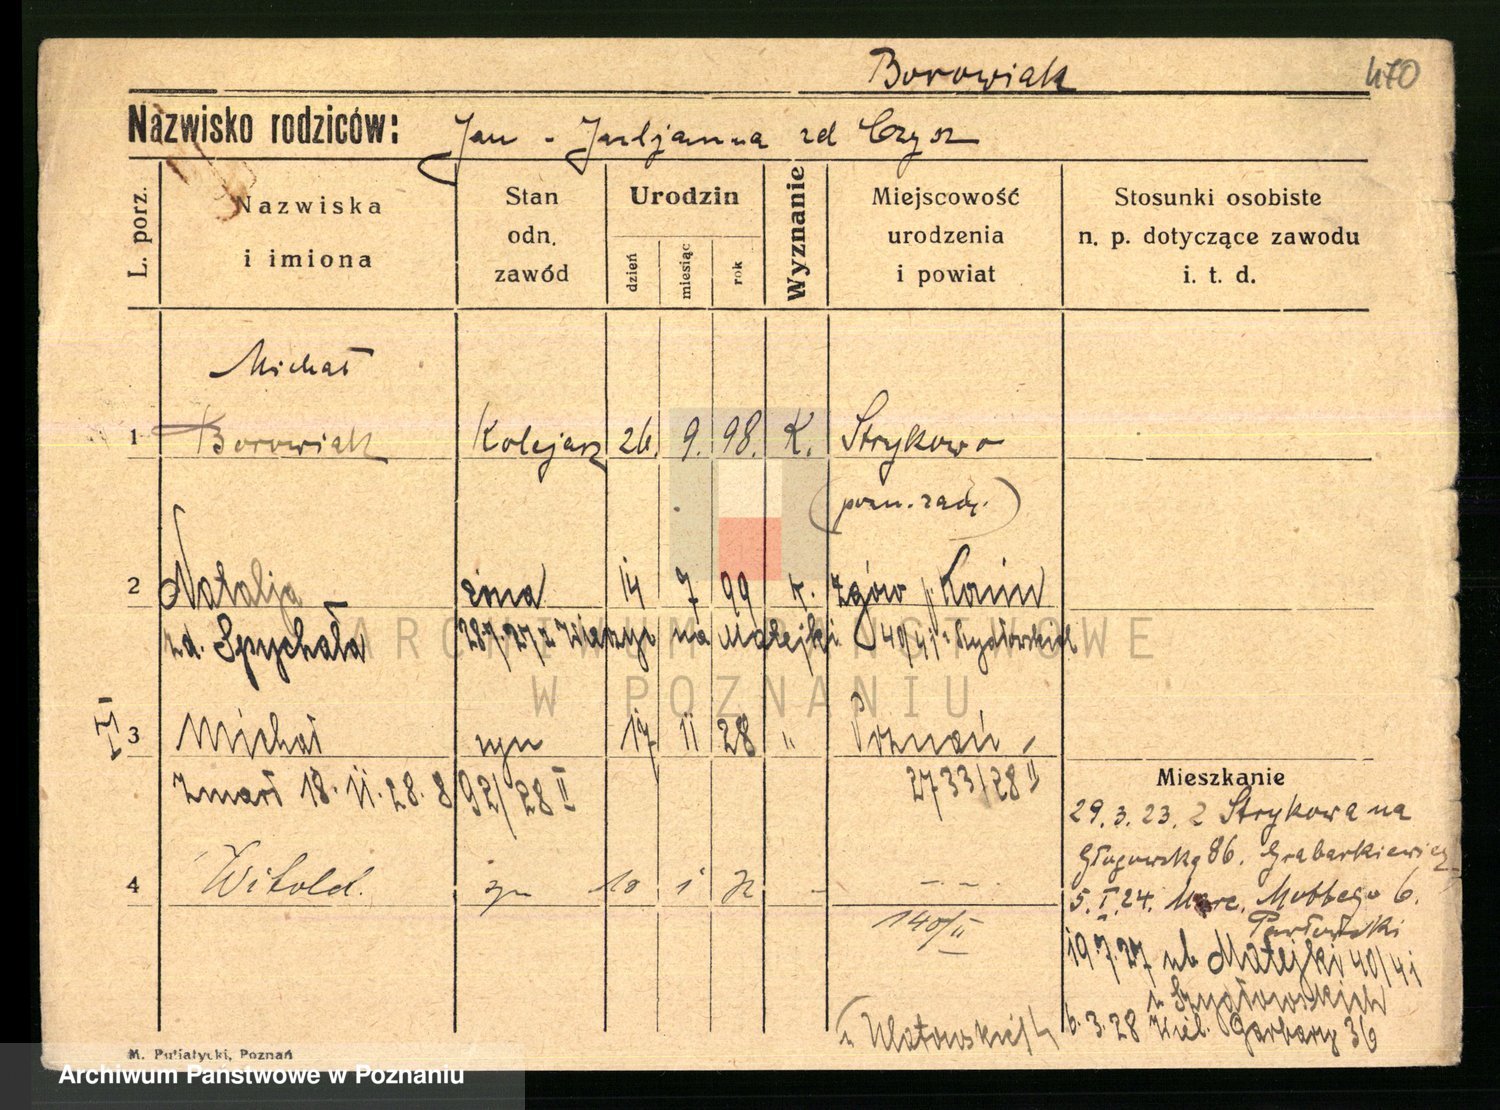 Borowiak
470
Nazwisko rodziców: Jan - Juljanna zd Czysz
L. porz.
Nazwiska
i imiona
Stan
odn.
zawód
Urodzin
dzień
miesiąc
rok
Wyznanie
Miejscowość
urodzenia
i powiat
Stosunki osobiste
n. p. dotyczące zawodu
i. t. d.
Michał
1 Borowiak Kolejarz 26. 9. 98. K. Strykowo
(pozn. zach.)
2 Natalja żona 14 7 99 k. Zgów p. Konin
zd. Spychała na Matejki 40/41
III
3 Michał syn 17 11 28 " Poznań
zmarł 18. 11. 28. 892/28 II 2733/28 II
Mieszkanie
29. 3. 23. z Strykowa na
Głogowską 86. Grabarkiewicz
4 Witold. syn 10 1 32 - - . - .
140/II
5. I. 24. Marc. Mottego 6.
19 7. 27 ul. Matejki 40/41
6. 3. 28 Wiel. Garbary 36
M. Putiatycki, Poznań
ARCHIWUM PAŃSTWOWE
W POZNANIU
Archiwum Państwowe w Poznaniu